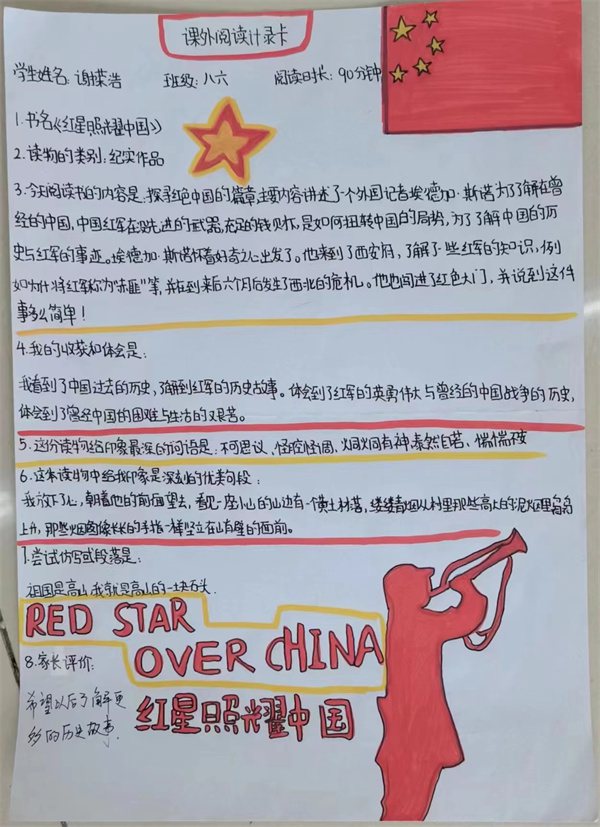 课外阅读计录卡
学生姓名: 谢琛浩 班级: 八六 阅读时长: 90分钟
1.书名《红星照耀中国》
2.读物的类别: 纪实作品
3.今天阅读书的内容是: 探寻红色中国的篇章,主要内容讲述了一个外国记者埃德加·斯诺为了了解在曾
经的中国,中国红军在没先进的武器,充足的钱财下,是如何扭转中国的局势,为了了解中国的历
史与红军的事迹。埃德加·斯诺怀着好奇之心出发了。他来到了西安府,了解了一些红军的知识,例
如为什么将红军称为"赤匪"等,并在到来后六个月后发生了西北的危机。他也闯进了红色大门,并说到这件
事多么简单!
4.我的收获和体会是:
我看到了中国过去的历史,了解到红军的历史故事。体会到了红军的英勇伟大与曾经的中国战争的历史,
体会到了曾经中国的困难与生活的艰苦。
5.这份读物给印象最深的词语是: 不可思议、怪腔怪调、炯炯有神、泰然自若、惴惴不安
6.这本读物中给我印象是深刻的优美句段:
我放下了心,朝着他的前面望去,看见一座小山的山边有一个黄土村落,缕缕青烟从村里那些高大的泥烟囱里袅袅
上升,那些烟囱像长长的手指一样竖立在山壁的面前。
7.尝试仿写或段落是:
祖国是高山,我就是高山的一块石头.
RED STAR
OVER CHINA
8.家长评价:
希望以后了解更
多的历史故事.
红星照耀中国